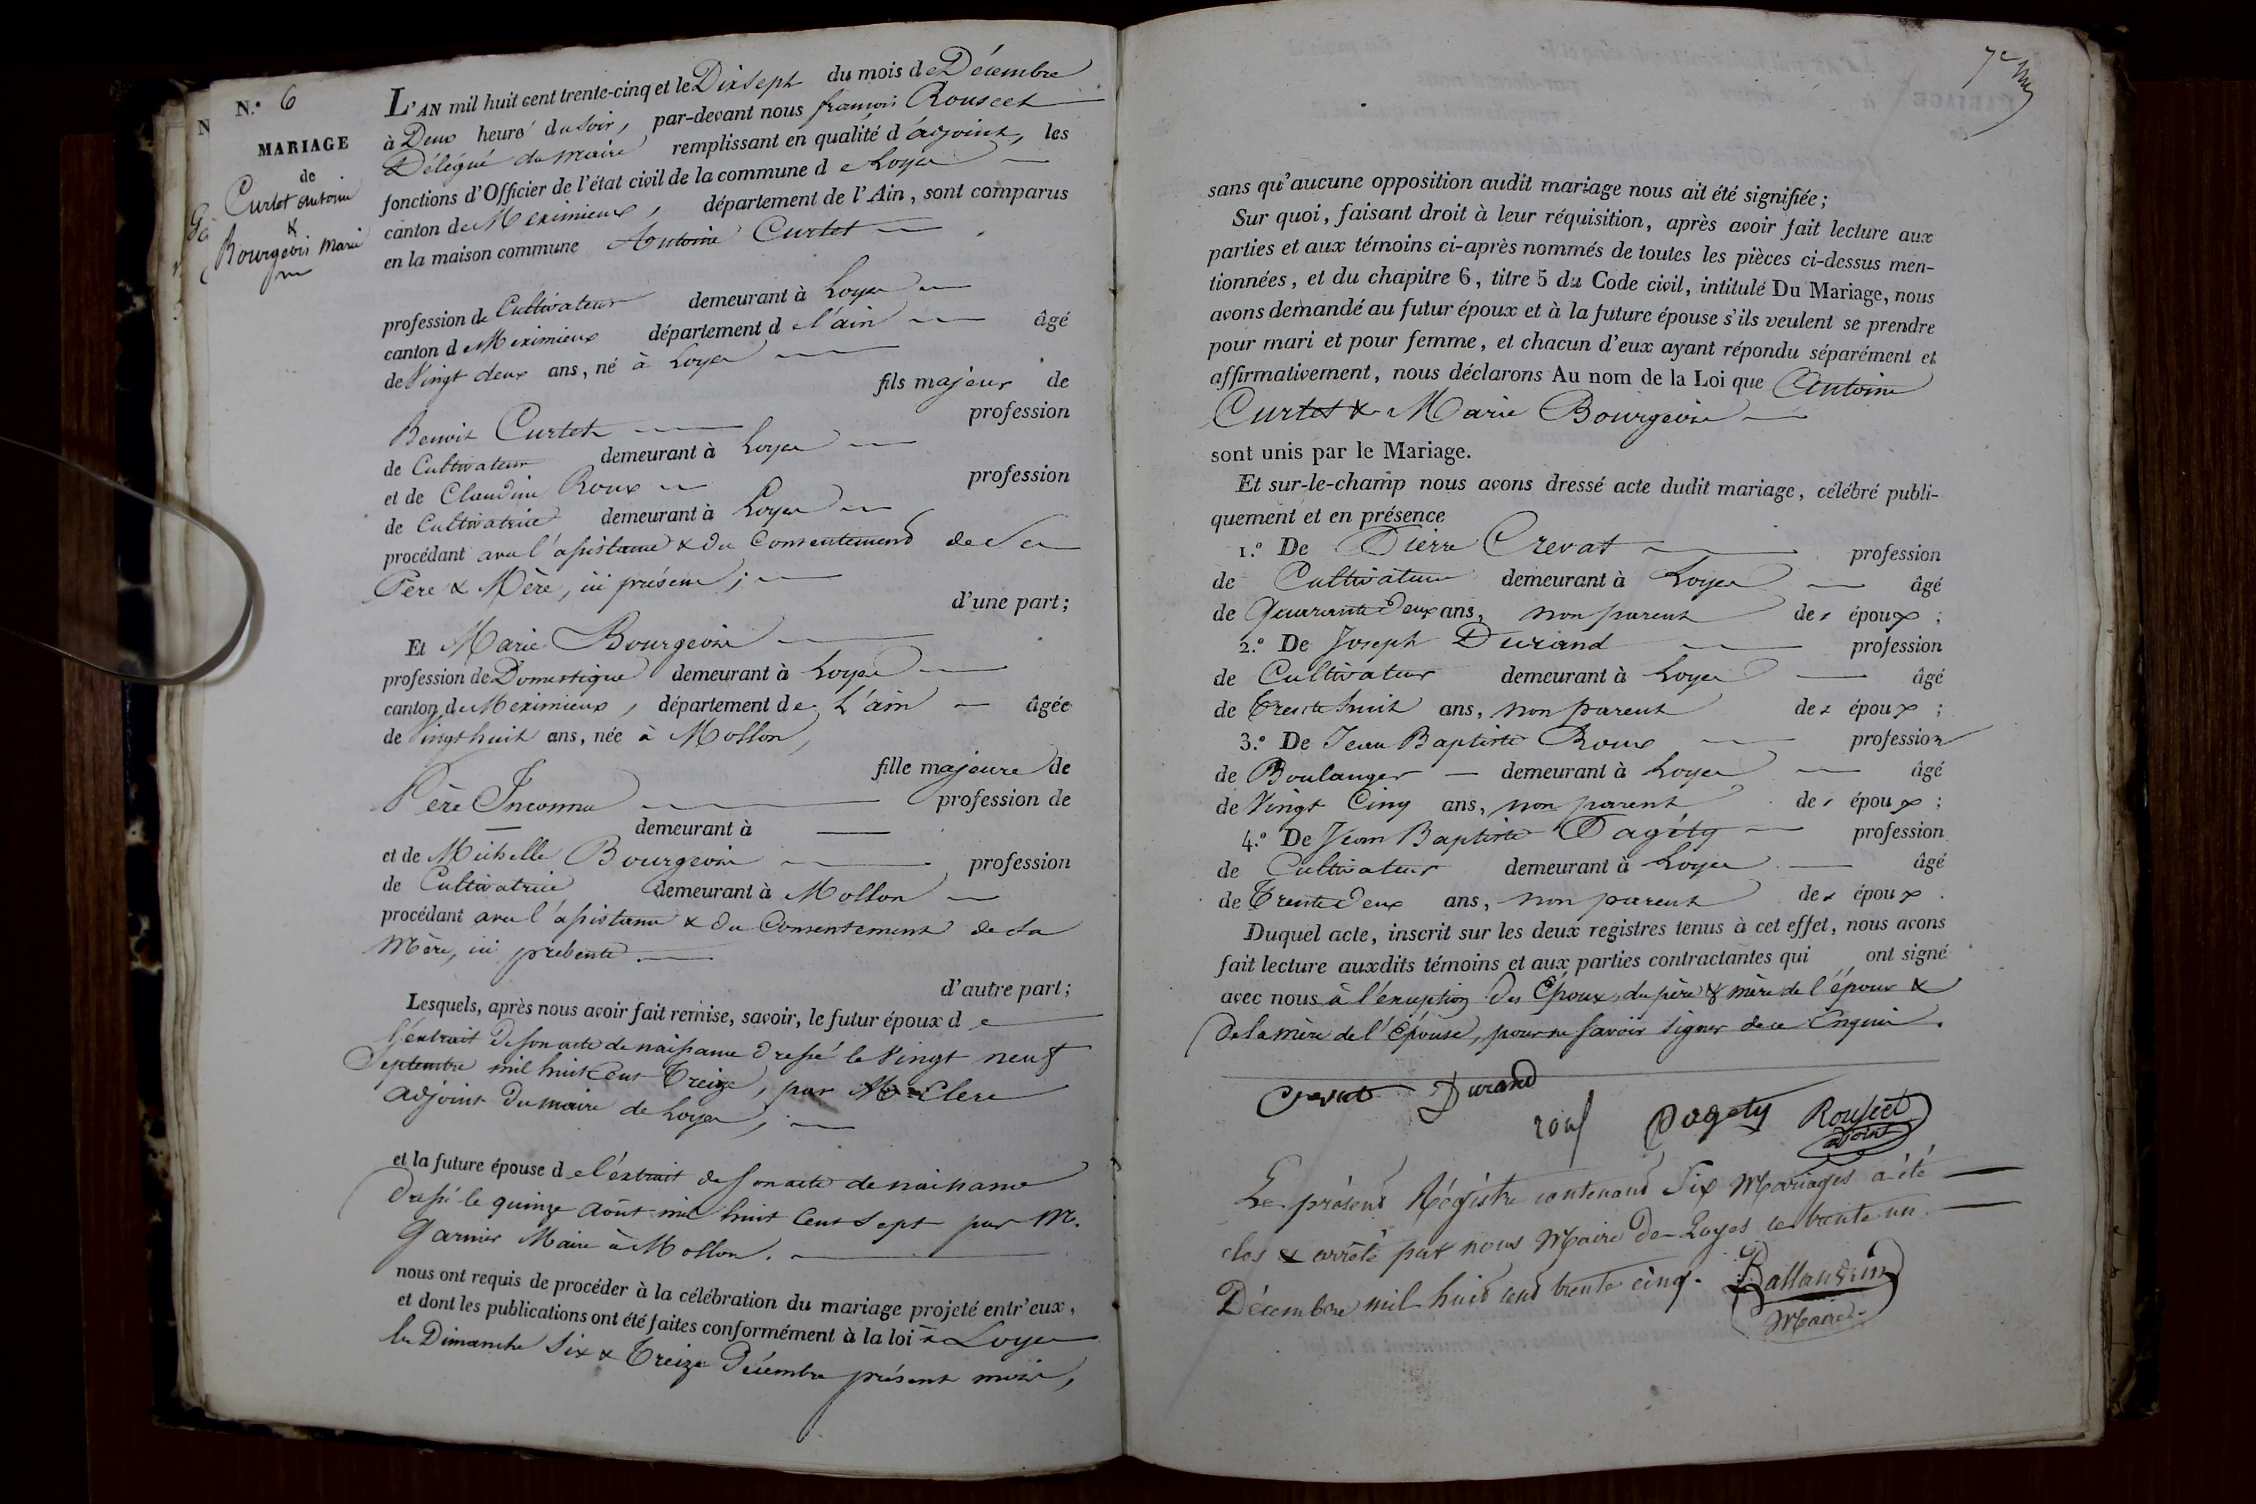 N.º 6
MARIAGE
de
Curtet Antoine
&
Bourgeois Marie
L'AN mil huit cent trente-cinq et le Dix Sept du mois de Décembre
à Deux heures du soir, par-devant nous françois Rousset
Délégué du maire remplissant en qualité d'adjoint, les
fonctions d'Officier de l'état civil de la commune de Loyes
canton de Meximieux, département de l'Ain, sont comparus
en la maison commune Antoine Curtet
profession de Cultivateur demeurant à Loyes
canton de Meximieux département de l'ain âgé
de Vingt deux ans, né à Loyes
fils majeur de
Benoit Curtet profession
de Cultivateur demeurant à Loyes
et de Claudine Roux profession
de Cultivatrice demeurant à Loyes
procédant avec l'assistance & du Consentement de Ses
Père & Mère, ici présens;
d'une part;
Et Marie Bourgeois
profession de Domestique demeurant à Loyes
canton de Meximieux, département de L'ain âgée
de Vingt huit ans, née à Mollon,
fille majeure de
Père Inconnu profession de
demeurant à
et de Michelle Bourgeois profession
de Cultivatrice demeurant à Mollon
procédant avec l'assistance & du Consentement de Sa
Mère, ici présente.
d'autre part;
Lesquels, après nous avoir fait remise, savoir, le futur époux de
l'extrait de son acte de naissance dressé le Vingt neuf
Septembre mil huit Cent Treize, par Mr Clerc
adjoint du maire de Loyes;
et la future épouse de l'extrait de son acte de naissance
dressé le quinze août mil huit Cent Sept par M.
Garnier Maire à Mollon.
nous ont requis de procéder à la célébration du mariage projeté entr'eux,
et dont les publications ont été faites conformément à la loi à Loyes
les Dimanche Six & Treize Décembre présent mois,
7e
sans qu'aucune opposition audit mariage nous ait été signifiée;
Sur quoi, faisant droit à leur réquisition, après avoir fait lecture aux
parties et aux témoins ci-après nommés de toutes les pièces ci-dessus men-
tionnées, et du chapitre 6, titre 5 du Code civil, intitulé Du Mariage, nous
avons demandé au futur époux et à la future épouse s'ils veulent se prendre
pour mari et pour femme, et chacun d'eux ayant répondu séparément et
affirmativement, nous déclarons Au nom de la Loi que Antoine
Curtet & Marie Bourgeois
sont unis par le Mariage.
Et sur-le-champ nous avons dressé acte dudit mariage, célébré publi-
quement et en présence
1.º De Pierre Crevat profession
de Cultivateur demeurant à Loyes âgé
de Quarante Deux ans, non parent des époux;
2.º De Joseph Durand profession
de Cultivateur demeurant à Loyes âgé
de Trente huit ans, non parent des époux;
3.º De Jean Baptiste Roux profession
de Boulanger demeurant à Loyes âgé
de Vingt Cinq ans, non parent des époux;
4.º De Jean Baptiste Dagéty profession
de Cultivateur demeurant à Loyes âgé
de Trente Deux ans, non parent des époux.
Duquel acte, inscrit sur les deux registres tenus à cet effet, nous avons
fait lecture auxdits témoins et aux parties contractantes qui ont signé
avec nous à l'exception des Époux, du père & mère de l'époux &
de la mère de l'Épouse, pour ne savoir signer de ce Enquis.
Crevat Durand
roux Dagety Rousset
adjoint
Le présent Régistre contenant Six Mariages a été
clos & arrêté par nous Maire de Loyes ce trente un
Décembre mil huit cent trente cinq. Ballandrin
Maire